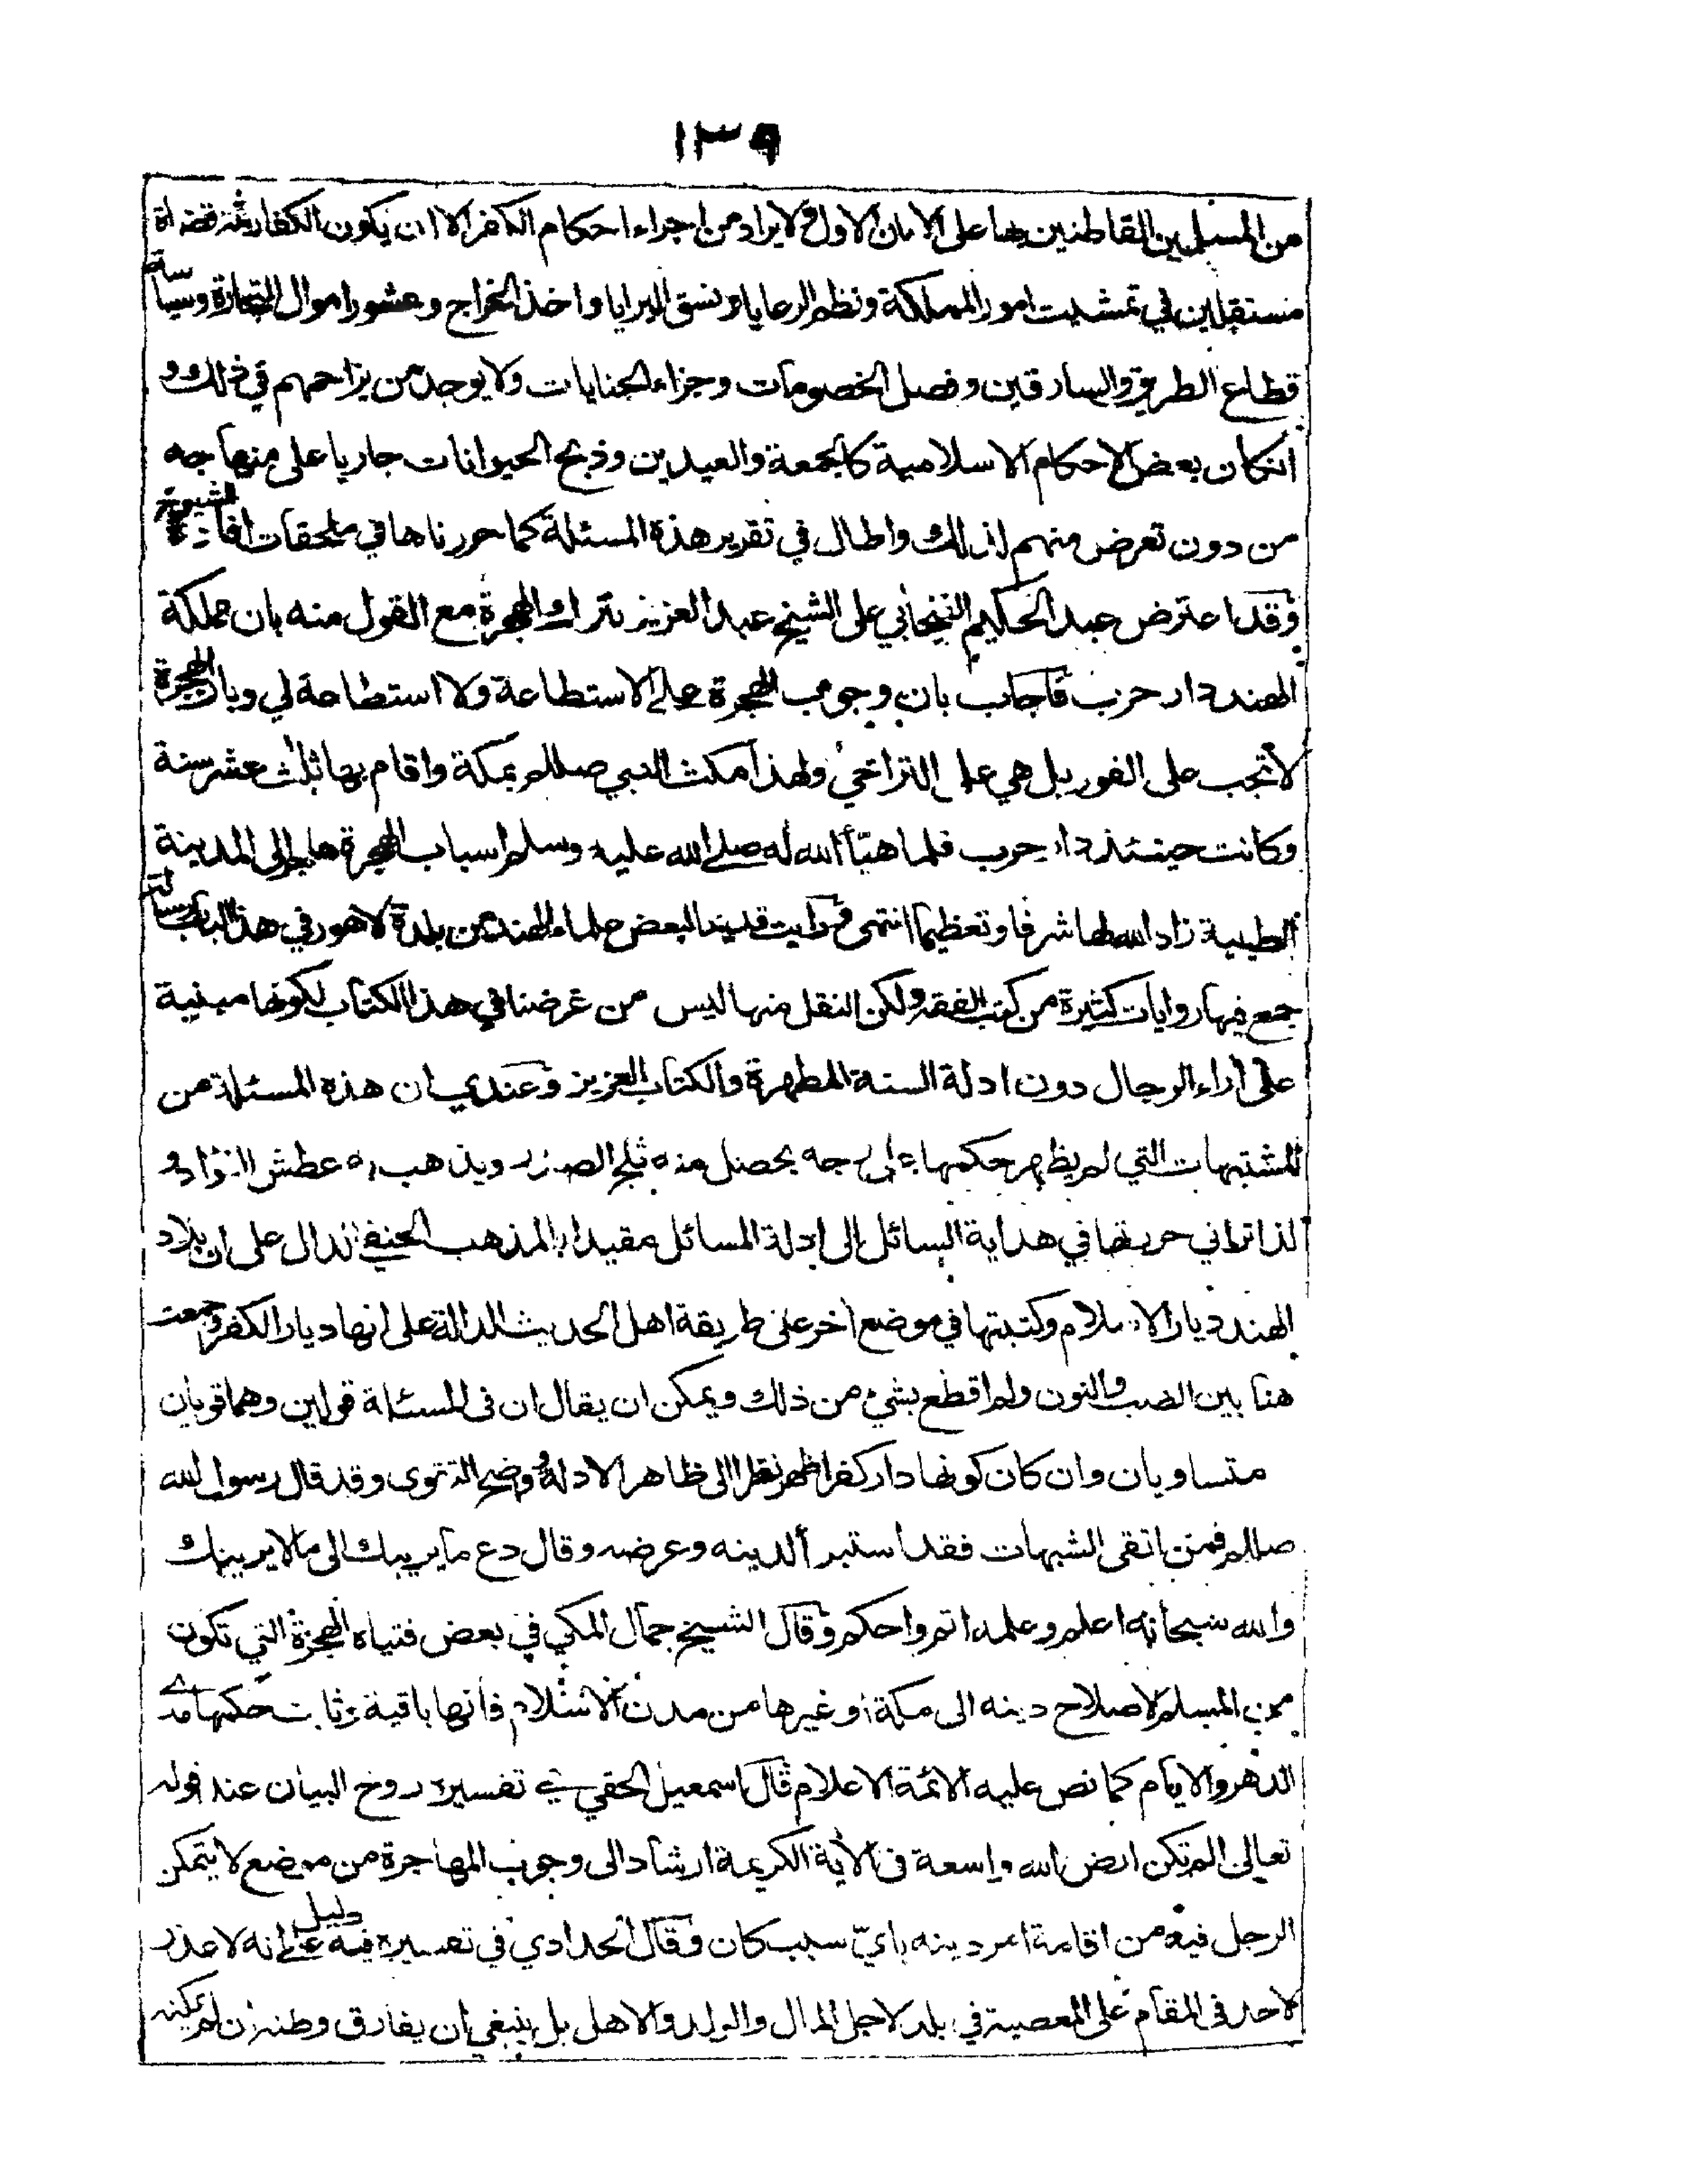 ١٣٩
من المسلمين القاطنين بها على الامان الاول ولا يراد من اجراء احكام الكفر الا ان يكون الكفار ثمه قضاة
مستقلين في تمشيت امور المملكة ونظم الرعايا ونسق البرايا واخذ الخراج وعشور اموال التجارة وسياسة
قطاع الطريق والسارقين وفصل الخصومات وجزاء الجنايات ولا يوجد من يزاحمهم في ذلك و
انكان بعض الاحكام الاسلامية كالجمعة والعيدين وذبح الحيوانات جاريا على منهاجه
من دون تعرض منهم لذلك واطال في تقرير هذة المسئلة كما حررناها في ملحقات افادة الشيوخ
وقد اعترض عبد الحكيم على الشيخ عبد العزيز بترك الهجرة مع القول منه بان مملكة
الهند دار حرب فاجاب بان وجوب الهجرة على الاستطاعة ولا استطاعة لي وبان الهجرة
لا تجب على الفور بل هي على التراخي ولهذا مكث النبي صللم بمكة واقام بها ثلث عشر سنة
وكانت حينئذ دار حرب فلما هيأ الله له صلى الله عليه وسلم اسباب الهجرة هاجر الى المدينة
الطيبة زاد الله لها شرفا وتعظيما انتهى ورايت قديما لبعض علماء الهند من بلدة لاهور في هذا الباب رسالة
جمع فيها روايات كثيرة من كتب الفقه ولكن النقل منها ليس من غرضنا في هذا الكتاب لكونها مبنية
على آراء الرجال دون ادلة السنة المطهرة والكتاب العزيز وعندي ان هذه المسئلة من
المشتبهات التي لم يظهر حكمها على وجه يحصل منه ثلج الصدر ويذهب به عطش الفؤاد و
لذا تراني حررتها في هداية السائل الى ادلة المسائل مقيدا بالمذهب الحنفي الدال على ان بلاد
الهند ديار الاسلام وكتبتها في موضع آخر على طريقة اهل الحديث الدالة على انها ديار الكفر وجمعت
هنا بين الضب والنون ولم اقطع بشيء من ذلك ويمكن ان يقال ان في المسئلة قولين وهما قويان
متساويان وان كان كونها دار كفر اظهر نظرا الى ظاهر الادلة وواضح التقوى وقد قال رسول الله
صللم فمن اتقى الشبهات فقد استبرأ لدينه وعرضه وقال دع ما يريبك الى ما لا يريبك
والله سبحانه اعلم وعلمه اتم واحكم وقال الشيخ جمال المكي في بعض فتياه الهجرة التي تكون
من المسلم لاصلاح دينه الى مكة او غيرها من مدن الاسلام فانها باقية وثابت حكمها مدى
الدهر والايام كما نص عليه الائمة الاعلام قال اسمعيل الحقي في تفسيره روح البيان عند قوله
تعالى الم تكن ارض الله واسعة في الآية الكريمة ارشاد الى وجوب المهاجرة من موضع لا يتمكن
الرجل فيه من اقامة امر دينه باي سبب كان وقال الحدادي في تفسيره فيه دليل على انه لا عذر
لاحد في المقام على المعصية في بلد لاجل المال والولد والاهل بل ينبغي ان يفارق وطنه ان لم يمكنه